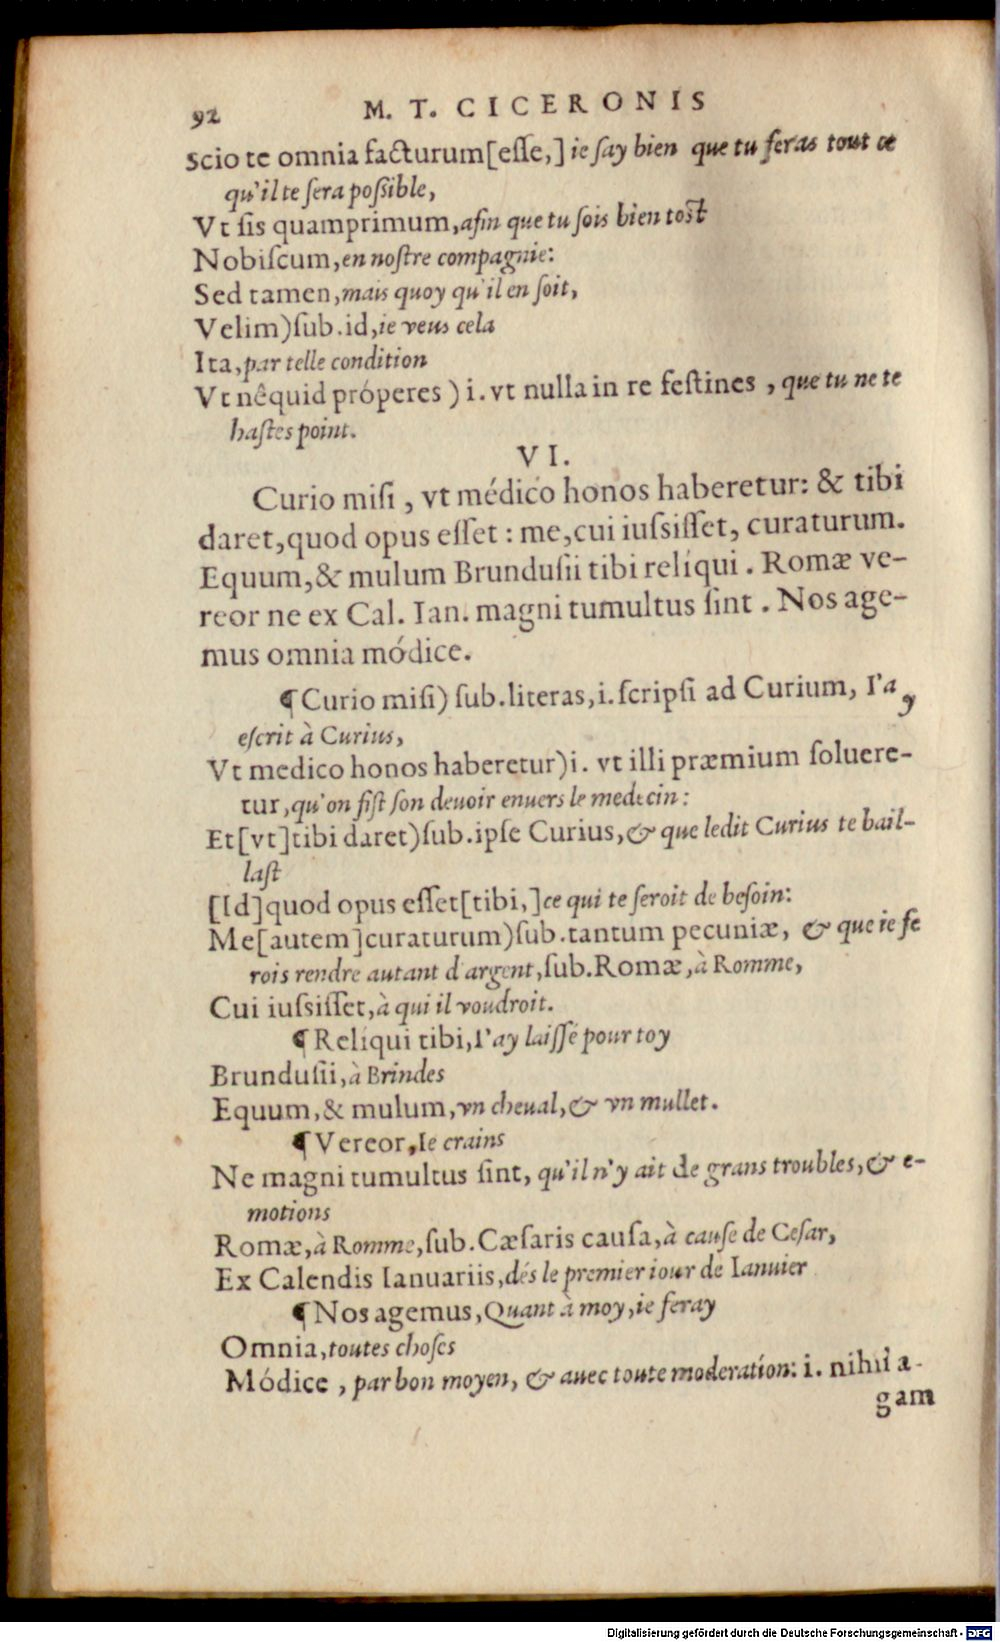 92 M. T. CICERONIS
Scio te omnia facturum[esse,] ie say bien que tu feras tout ce
qu'il te sera possible,
Vt sis quamprimum, afin que tu sois bien tost
Nobiscum, en nostre compagnie:
Sed tamen, mais quoy qu'il en soit,
Velim) sub. id, ie veus cela
Ita, par telle condition
Vt nêquid próperes) i. vt nulla in re festines, que tu ne te
hastes point.
VI.
Curio misi, vt médico honos haberetur: & tibi
daret, quod opus esset: me, cui iussisset, curaturum.
Equum, & mulum Brundusii tibi relíqui. Romæ ve-
reor ne ex Cal. Ian. magni tumultus sint. Nos age-
mus omnia módice.
¶ Curio misi) sub. literas, i. scripsi ad Curium, I'ay
escrit à Curius,
Vt medico honos haberetur) i. vt illi præmium soluere-
tur, qu'on fist son deuoir enuers le medecin:
Et[vt]tibi daret) sub. ipse Curius, & que ledit Curius te bail-
last
[Id]quod opus esset[tibi,] ce qui te seroit de besoin:
Me[autem]curaturum) sub. tantum pecuniæ, & que ie fe
rois rendre autant d'argent, sub. Romæ, à Romme,
Cui iussisset, à qui il voudroit.
¶ Relíqui tibi, I'ay laissé pour toy
Brundusii, à Brindes
Equum, & mulum, vn cheual, & vn mullet.
¶ Vereor, Ie crains
Ne magni tumultus sint, qu'il n'y ait de grans troubles, & e-
motions
Romæ, à Romme, sub. Cæsaris causa, à cause de Cesar,
Ex Calendis Ianuariis, dés le premier iour de Ianuier
¶ Nos agemus, Quant à moy, ie feray
Omnia, toutes choses
Módice, par bon moyen, & auec toute moderation: i. nihil a-
gam
Digitalisierung gefördert durch die Deutsche Forschungsgemeinschaft - DFG